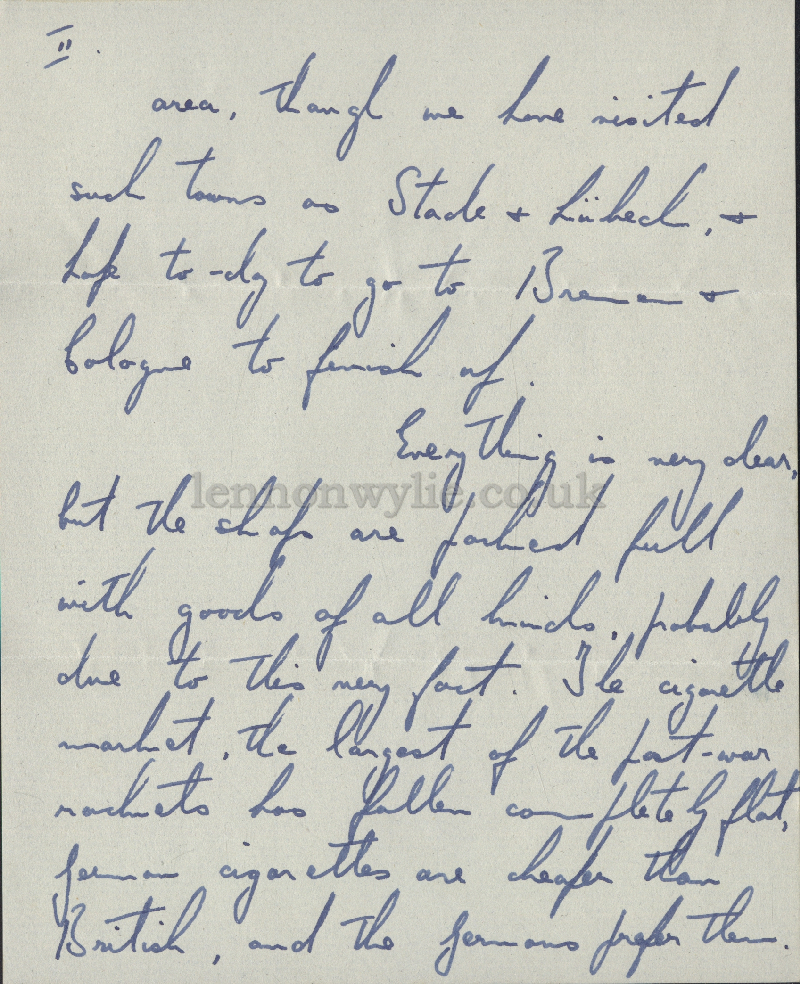 II.
area, though we have visited
such towns as Stade + Lübeck, +
hope to-day to go to Bremen +
Cologne to finish off.
Everything is very dear,
lennonwylie.co.uk
but the shops are packed full
with goods of all kinds, probably
due to this very fact. The cigarette
market, the largest of the post-war
rackets has fallen completely flat,
German cigarettes are cheaper than
British, and the Germans prefer them.